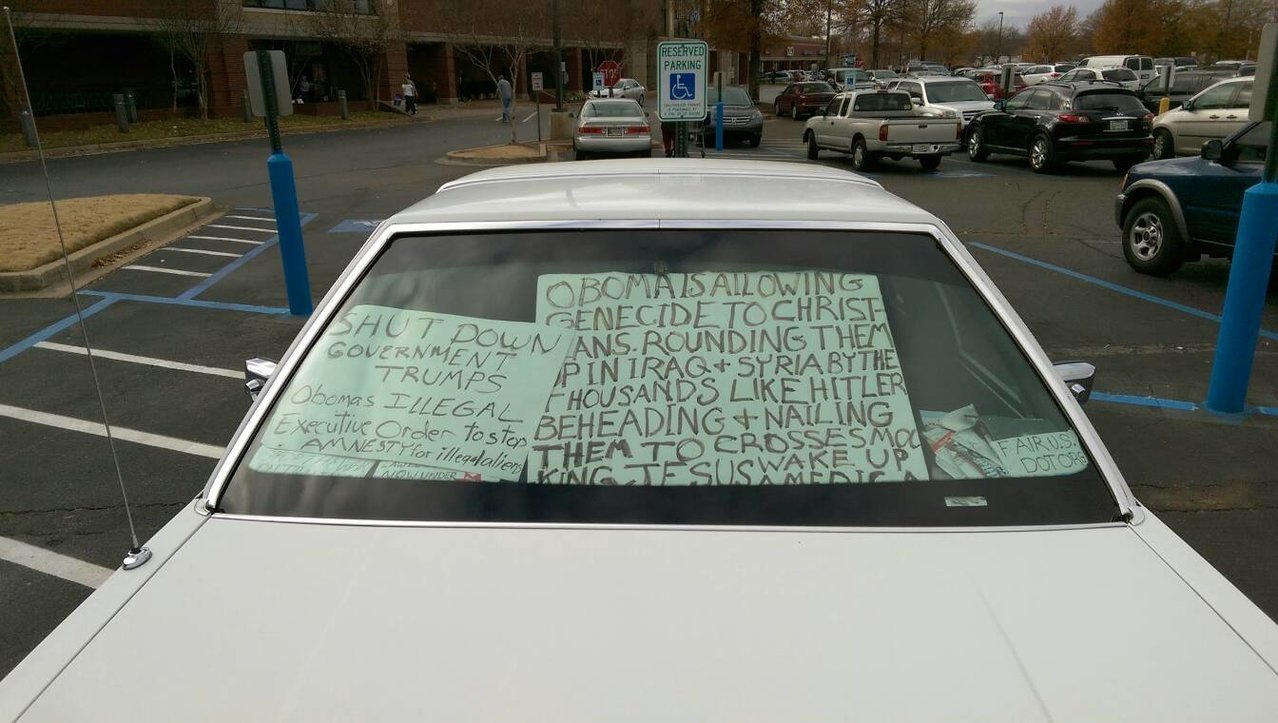 RESERVED
PARKING
STOP
SHUT DOWN
GOVERNMENT
TRUMPS
Obomas ILLEGAL
Executive Order to stop
AMNESTY for illegal aliens
OBOMA IS ALLOWING
GENECIDE TO CHRIST-
ANS. ROUNDING THEM
UP IN IRAQ + SYRIA BY THE
THOUSANDS LIKE HITLER
BEHEADING + NAILING
THEM TO CROSSES MOC
KING JESUS WAKE UP
AMERICA
FAIR U.S.
DOTORS